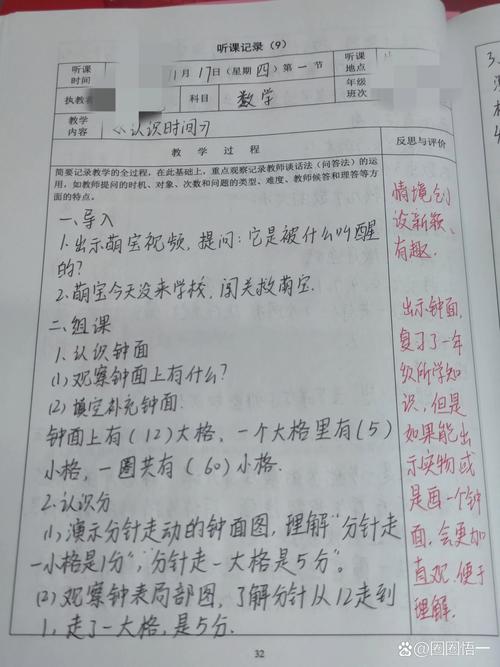 听课记录（9）
听课时间 11月17日（星期四）第一节 听课地点
执教者 科目 数学 年级班次
教学内容 《认识时间》
教 学 过 程 反思与评价
简要记录教学的全过程，在此基础上，重点观察记录教师谈话法（问答法）的运
用，如教师提问的时机、对象、次数和问题的类型、难度、教师候答和理答等方
面的特点。
一、导入
1.出示萌宝视频，提问：它是被什么叫醒
的？
2.萌宝今天没来学校，闯关救萌宝.
二、组课
1.认识钟面
(1)观察钟面上有什么？
(2)填空补充钟面.
钟面上有（12）大格，一个大格里有（5）
小格，一圈共有（60）小格.
2.认识分
(1)演示分针走动的钟面图，理解“分针走
一小格是1分”，“分针走一大格是5分”。
(2)观察钟表局部图，了解分针从12走到
1，走了一大格，是5分.
情境创
设新颖、
有趣.
出示钟面，
复习了一年
级所学知
识，但是
如果能出
示实物或
是画一个钟
面，会更加
直观，便于
理解.
32
Bai百家号/圈圈悟一